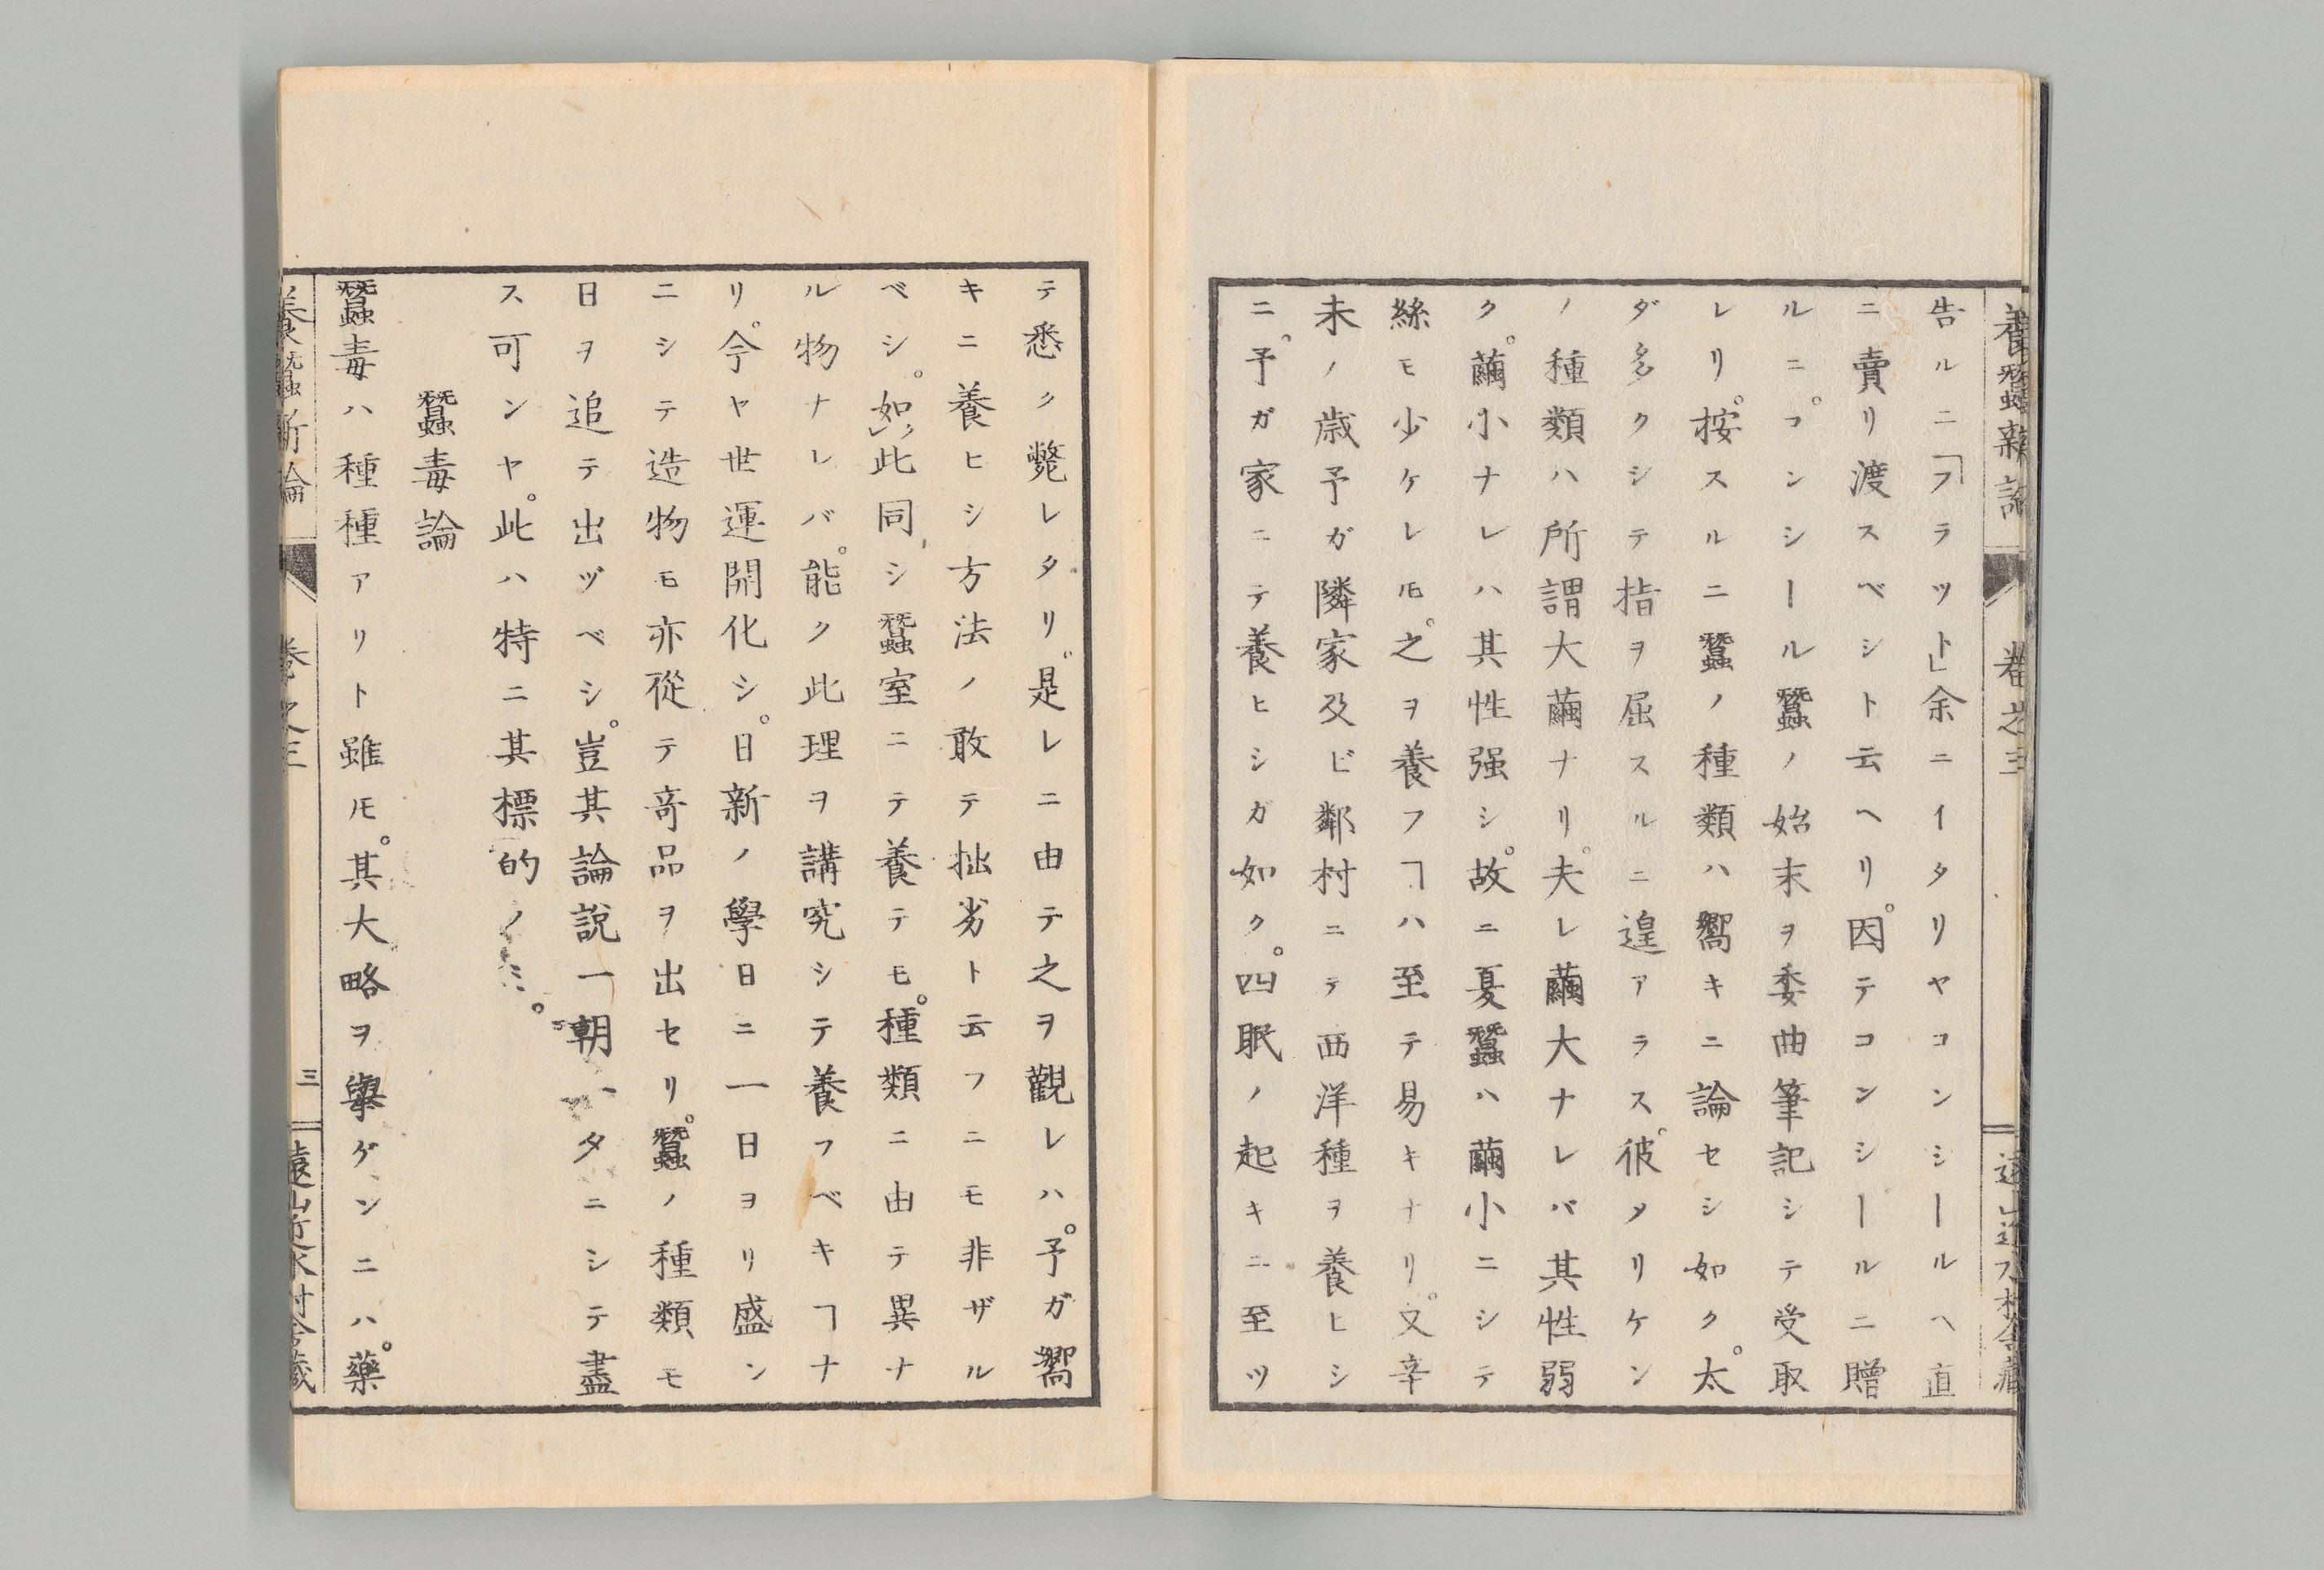 養蠶新論 卷之三 遠山近水村舍藏
告ルニ「フラツト」余ニイタリヤコンシールヘ直
ニ賣リ渡スベシト云ヘリ。因テコンシールニ贈
ルニ。コンシール蠶ノ始末ヲ委曲筆記シテ受取
レリ。按スルニ蠶ノ種類ハ嚮キニ論セシ如ク。太
ダ多クシテ指ヲ屈スルニ遑アラス。彼タリケン
ノ種類ハ所謂大繭ナリ。夫レ繭大ナレバ其性弱
ク。繭小ナレハ其性强シ。故ニ夏蠶ハ繭小ニシテ
絲モ少ケレ𪜈。之ヲ養フヿハ至テ易キナリ。又辛
未ノ歳予ガ隣家及ビ鄰村ニテ西洋種ヲ養ヒシ
ニ。予ガ家ニテ養ヒシガ如ク。四眠ノ起キニ至ツ
テ悉ク斃レタリ。是レニ由テ之ヲ觀レハ。予ガ嚮
キニ養ヒシ方法ノ敢テ拙劣ト云フニモ非ザル
ベシ。如レク此同シ蠶室ニテ養テモ。種類ニ由テ異ナ
ル物ナレバ。能ク此理ヲ講究シテ養フベキヿナ
リ。今ヤ世運開化シ。日新ノ學日ニ一日ヨリ盛ン
ニシテ造物モ亦從テ奇品ヲ出セリ。蠶ノ種類モ
日ヲ追テ出ヅベシ。豈其論說一朝一タニシテ盡
ス可ンヤ。此ハ特ニ其標的ノミ。
蠶毒論
蠶毒ハ種種アリト雖𪜈。其大略ヲ擧ゲンニハ。藥
養蠶新論 卷之三 三 遠山近水村舍藏